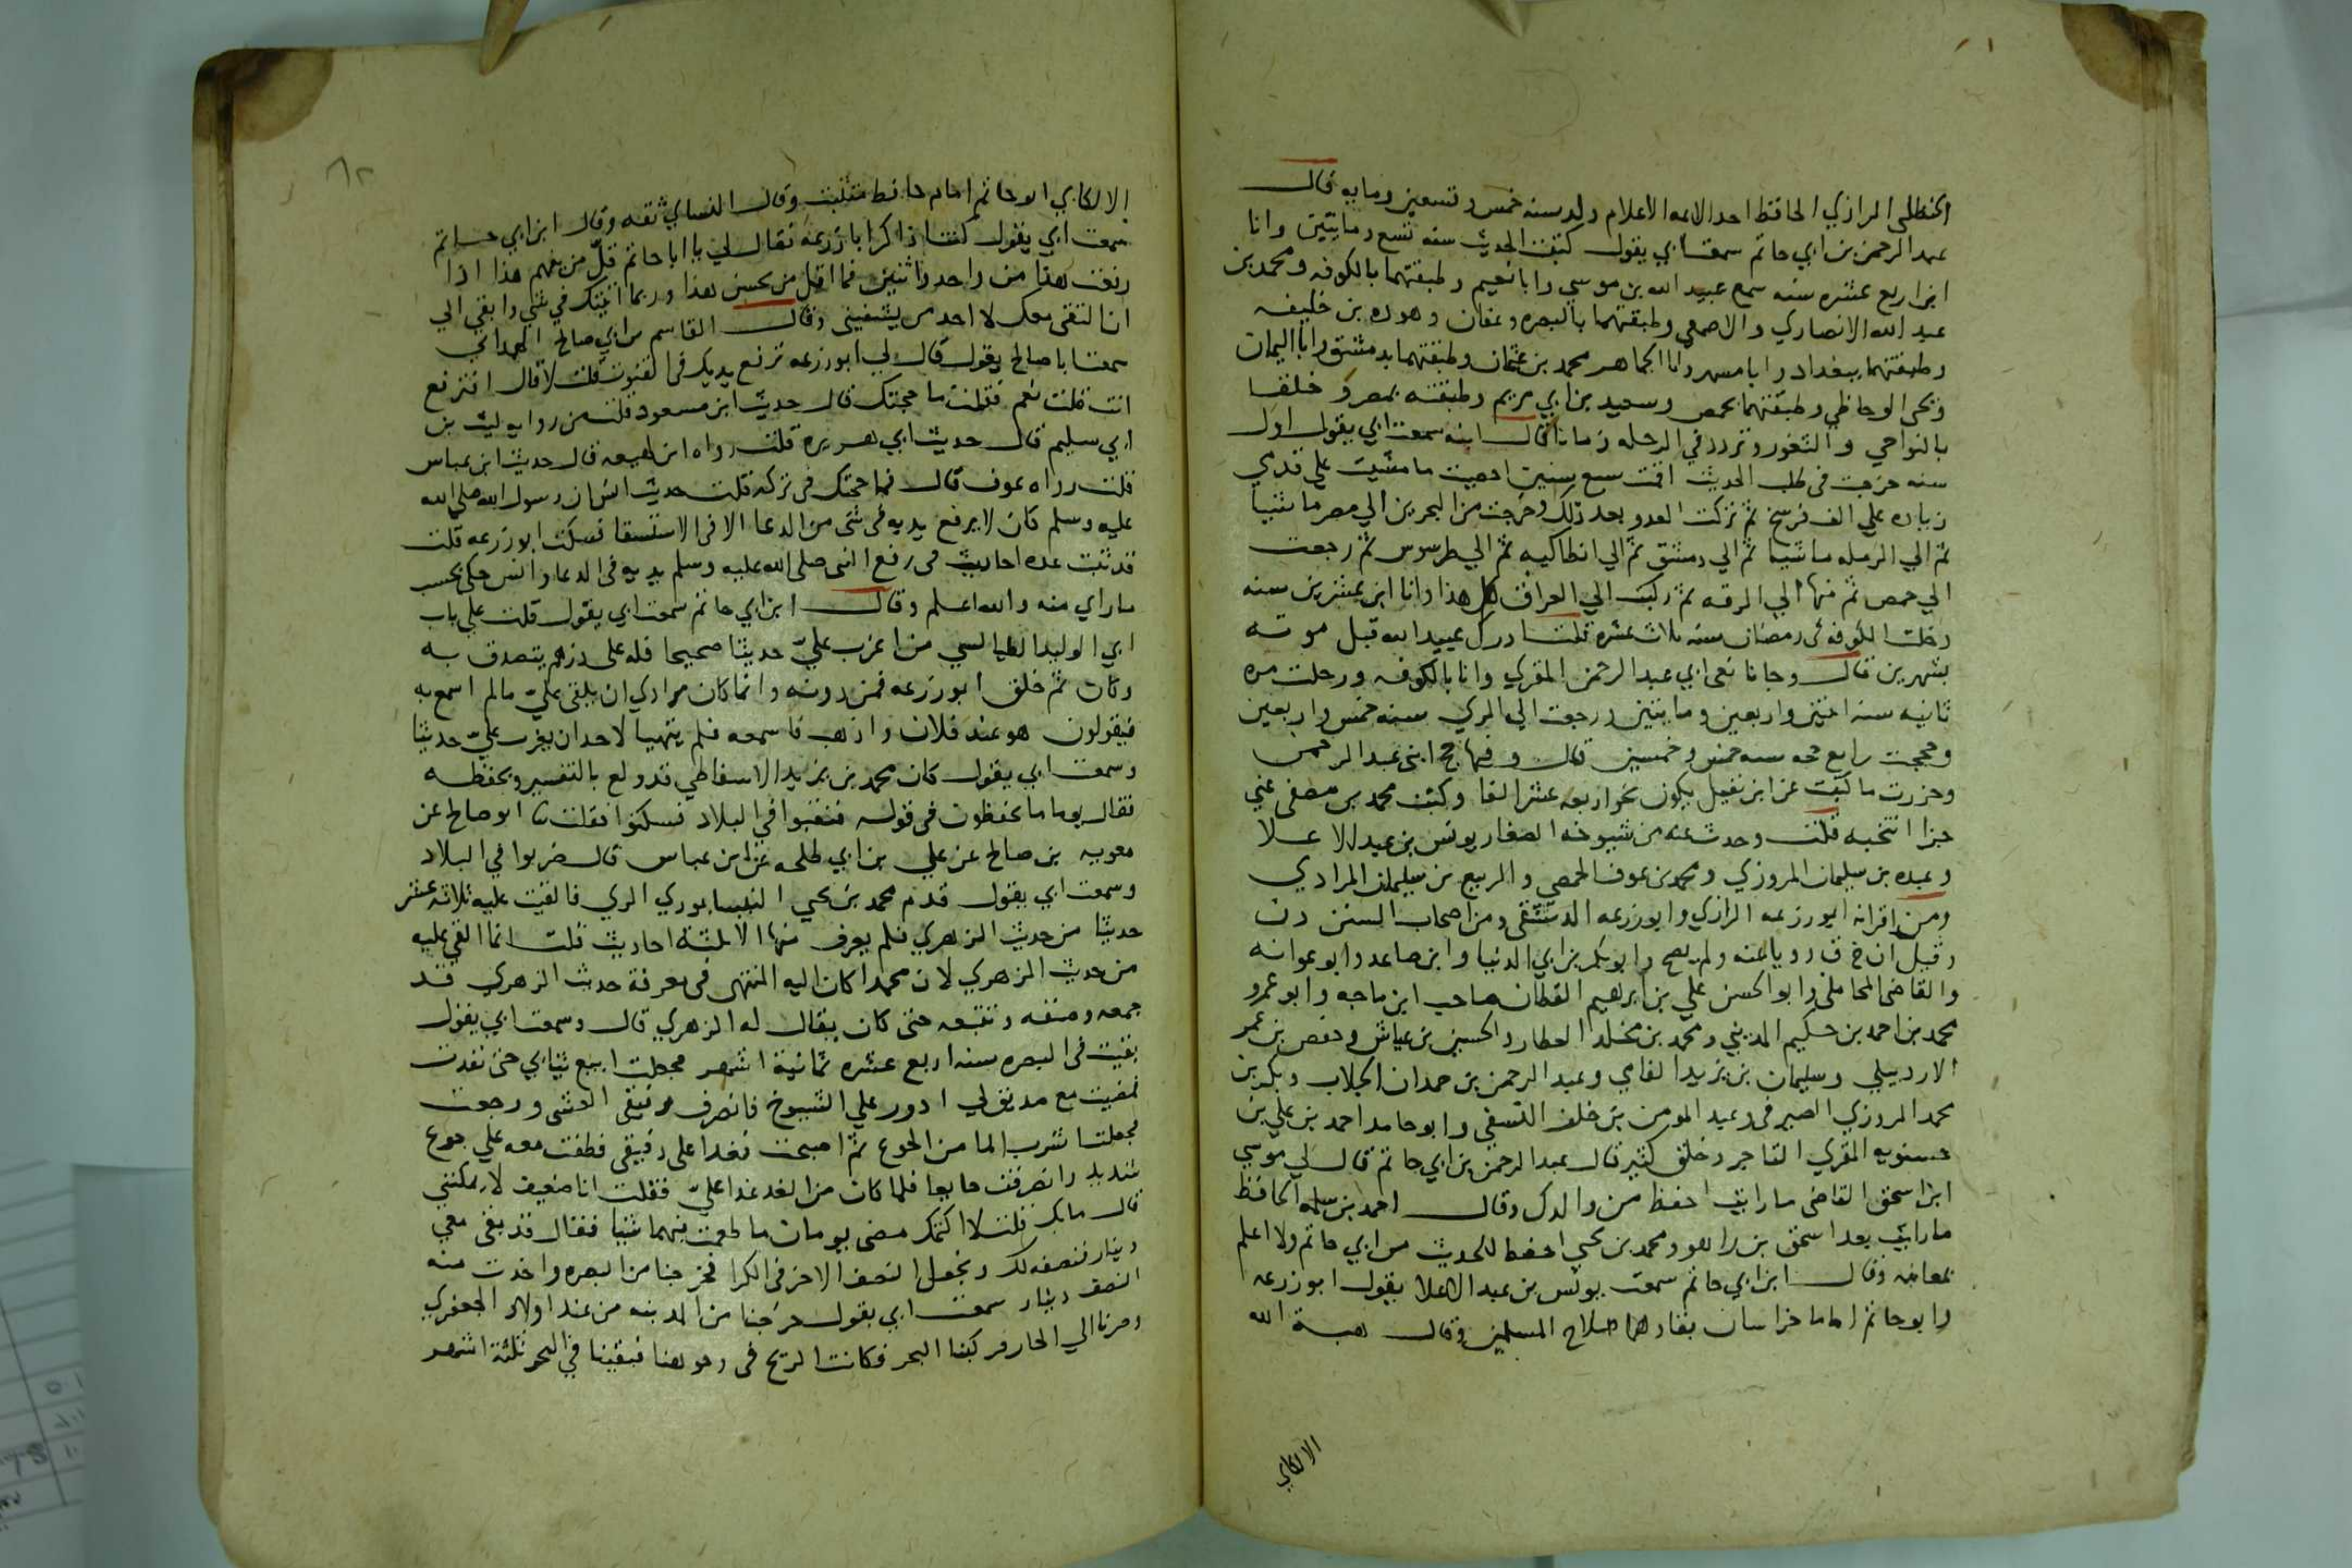 الحنظلي الرازي الحافظ احد الائمه الاعلام ولد سنه خمس وتسعين ومايه قال
عبد الرحمن بن ابي حاتم سمعت ابي يقول كتبت الحديث سنه تسع ومايتين وانا
ابن اربع عشره سنه سمع عبيد الله بن موسي وابا نعيم وطبقتهما بالكوفه ومحمد بن
عبد الله الانصاري والاصمعي وطبقتهما بالبصره وعفان وهوده بن خليفه
وطبقتهما ببغداد وابا مسهر وابا الجماهر محمد بن عثمان وطبقتهما بدمشق وابا اليمان
ويحي الوحاظي وطبقتهما بحمص وسعيد بن ابي مريم وطبقته بمصر وخلقا
بالنواحي والثغور وتردد في الرحله زمانا قال ابنه سمعت ابي يقول اول
سنه خرجت في طلب الحديث اقمت سبع سنين احصيت ما مشيت علي قدمي
زياده علي الف فرسخ ثم تركت العدد بعد ذلك وخرجت من البحرين الي مصر ماشيا
ثم الي الرمله ماشيا ثم الي دمشق ثم الي انطاكيه ثم الي طرسوس ثم رجعت
الي حمص ثم منها الي الرقه ثم ركبت الي العراق كل هذا وانا ابن عشرين سنه
دخلت الكوفه في رمضان سنه ثلاث عشره قلت ادرك عبيد الله قبل موته
بشهرين قال وجانا نعي ابي عبد الرحمن المقري وانا بالكوفه ورحلت مره
ثانيه سنه اثنين واربعين ومايتين ورجعت الي الري سنه خمس واربعين
وحججت رابع حجه سنه خمس وخمسين قال وفيها حج ابني عبد الرحمن
وحزرت ما كتبت عن ابن نفيل يكون نحو اربعه عشر الفا وكتب محمد بن مصفي عني
جزا انتخبه قلت وحدث عنه من شيوخه الصغار يونس بن عبد الاعلا
وعبده بن سليمان المروزي ومحمد بن عوف الحمصي والربيع بن سليمان المرادي
ومن اقرانه ابو زرعه الرازي وابو زرعه الدمشقي ومن اصحاب السنن د ن
وقيل ان خ ق رويا عنه ولم يصح وابو بكر بن ابي الدنيا وابن صاعد وابو عوانه
والقاضي المحاملي وابو الحسن علي بن ابرهيم القطان صاحب ابن ماجه وابو عمرو
محمد بن احمد بن حكيم المديني ومحمد بن مخلد العطار والحسين بن عياش وحفص بن عمر
الاردبيلي وسليمان بن يزيد الفامي وعبد الرحمن بن حمدان الجلاب وبكر بن
محمد المروزي الصيرفي وعبد المومن بن خلف النسفي وابو حامد احمد بن علي بن
حسنويه المقري التاجر وخلق كثير قال عبد الرحمن بن ابي حاتم قال لي موسي
ابن اسحق القاضي ما رايت احفظ من والدك وقال احمد بن سلمه الحافظ
ما رايت بعد اسحق بن راهو ومحمد بن يحيي احفظ للحديث من ابي حاتم ولا اعلم
بمعانيه وقال ابن ابي حاتم سمعت يونس بن عبد الاعلا يقول ابو زرعه
وابو حاتم اماما خراسان بقاوهما صلاح المسلمين وقال هبة الله
الالكاي
الالكاي ابو حاتم امام حافظ متثبت وقال النساي ثقه وقال ابن ابي حاتم
سمعت ابي يقول كنت اذاكر ابا زرعه فقال لي يا ابا حاتم قل من يفهم هذا اذا
رفعت هذا من واحد واثنين فما اقل من يحسن هذا وربما اشك في شي وابقي الي
ان التقي معك لا احد من يشفيني وقال القاسم بن ابي صالح الهمداني
سمعت ابا صالح يقول قال لي ابو زرعه ترفع يديك في القنوت قلت لا قال افترفع
انت قلت نعم فقلت ما حجتك قال حديث ابن مسعود قلت من روايه ليث بن
ابي سليم قال حديث ابي هريره قلت رواه ابن لهيعه قال حديث ابن عباس
قلت رواه عوف قال فما حجتك في تركه قلت حديث انس ان رسول الله صلي الله
عليه وسلم كان لا يرفع يديه في شي من الدعا الا في الاستسقا فسكت ابو زرعه قلت
قد ثبتت عده احاديث في رفع النبي صلي الله عليه وسلم يديه في الدعا وانس حكي بحسب
ما راي منه والله اعلم وقال ابن ابي حاتم سمعت ابي يقول قلت علي باب
ابي الوليد الطيالسي من اغرب علي حديثا صحيحا فله علي درهم يتصدق به
وكان ثم خلق ابو زرعه فمن دونه وانما كان مرادي ان يلقي علي ما لم اسمع به
فيقولون هو عند فلان واذهب فاسمعه فلم يتهيا لاحد ان يغرب علي حديثا
وسمعت ابي يقول كان محمد بن يزيد الاسفاطي قد ولع بالتفسير وبحفظه
فقال يوما ما تحفظون في قوله فنقبوا في البلاد فسكتوا فقلت ثنا ابو صالح عن
معويه بن صالح عن علي بن ابي طلحه عن ابن عباس قال ضربوا في البلاد
وسمعت ابي يقول قدم محمد بن يحيي النيسابوري الري فالقيت عليه ثلاثه عشر
حديثا من حديث الزهري فلم يعرف منها الا ثلثة احاديث قلت انما القي عليه
من حديث الزهري لان محمدا كان اليه المنتهي في معرفة حديث الزهري قد
جمعه وصنفه وتتبعه حتي كان يقال له الزهري قال وسمعت ابي يقول
بقيت في البصره سنه اربع عشره ثمانية اشهر فجعلت ابيع ثيابي حتي نفدت
فمضيت مع صديق لي ادور علي الشيوخ فانصرف رفيقي العشي ورجعت
فجعلت اشرب الما من الجوع ثم اصبحت فغدا علي رفيقي فطفت معه علي جوع
شديد وانصرفت جايعا فلما كان من الغد غدا علي فقلت انا ضعيف لا يمكنني
قال ما بك قلت لا اكتمك مضي يومان ما طعمت فيهما شيا فقال قد بقي معي
دينار فنصفه لك ونجعل النصف الاخر في الكرا فخرجنا من البصره واخذت منه
النصف دينار سمعت ابي يقول خرجنا من المدينه من عند اولاد الجعفري
وصرنا الي الجار فركبنا البحر فكانت الريح في وجوهنا فبقينا في البحر ثلثة اشهر